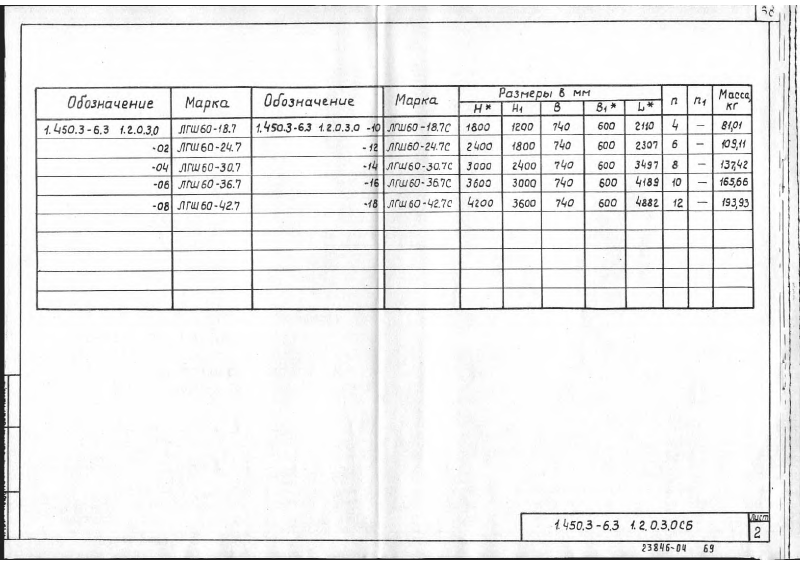 68
Обозначение Марка Обозначение Марка Размеры в мм n n1 Масса, кг
H* H1 B B1* L*
1.450.3-6.3 1.2.0.3.0 ЛГШ60-18.7 1.450.3-6.3 1.2.0.3.0 -10 ЛГШ60-18.7С 1800 1200 740 600 2110 4 — 81,01
-02 ЛГШ60-24.7 -12 ЛГШ60-24.7С 2400 1800 740 600 2307 6 — 109,11
-04 ЛГШ60-30.7 -14 ЛГШ60-30.7С 3000 2400 740 600 3497 8 — 137,42
-06 ЛГШ60-36.7 -16 ЛГШ60-36.7С 3600 3000 740 600 4189 10 — 165,66
-08 ЛГШ60-42.7 -18 ЛГШ60-42.7С 4200 3600 740 600 4882 12 — 193,93
1.450.3-6.3 1.2.0.3.0СБ
Лист
2
23846-04 69